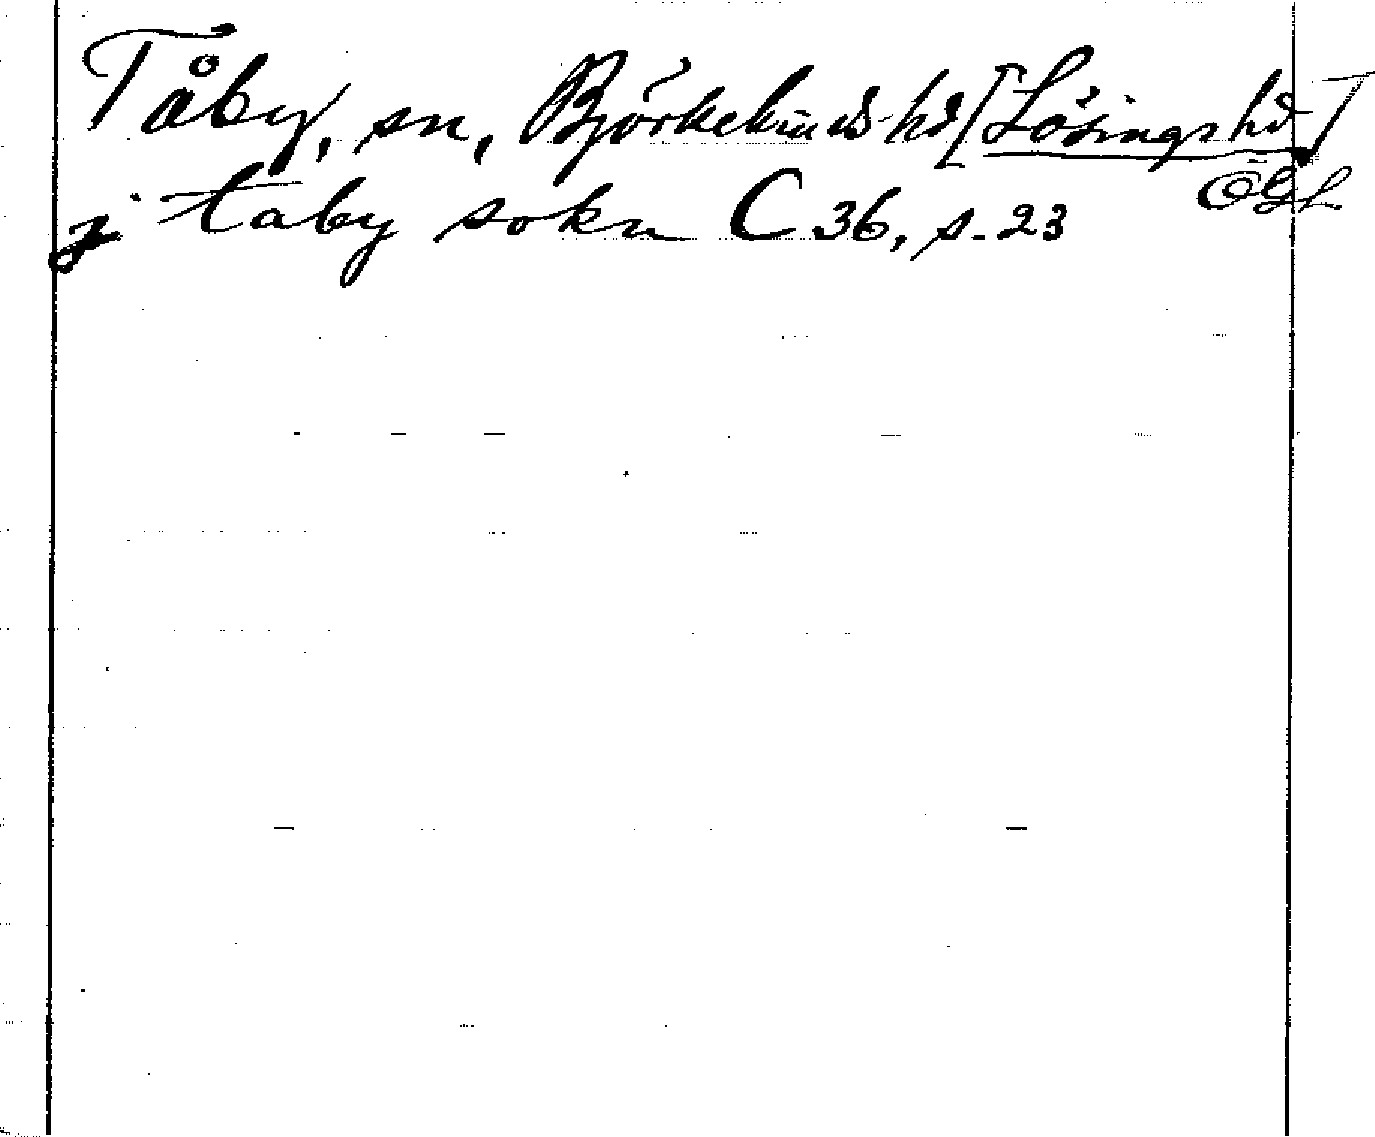 Tåby, sn, Björkekinds hd [Lösings hd]
ÖGL
j taby sokn C 36, s. 23